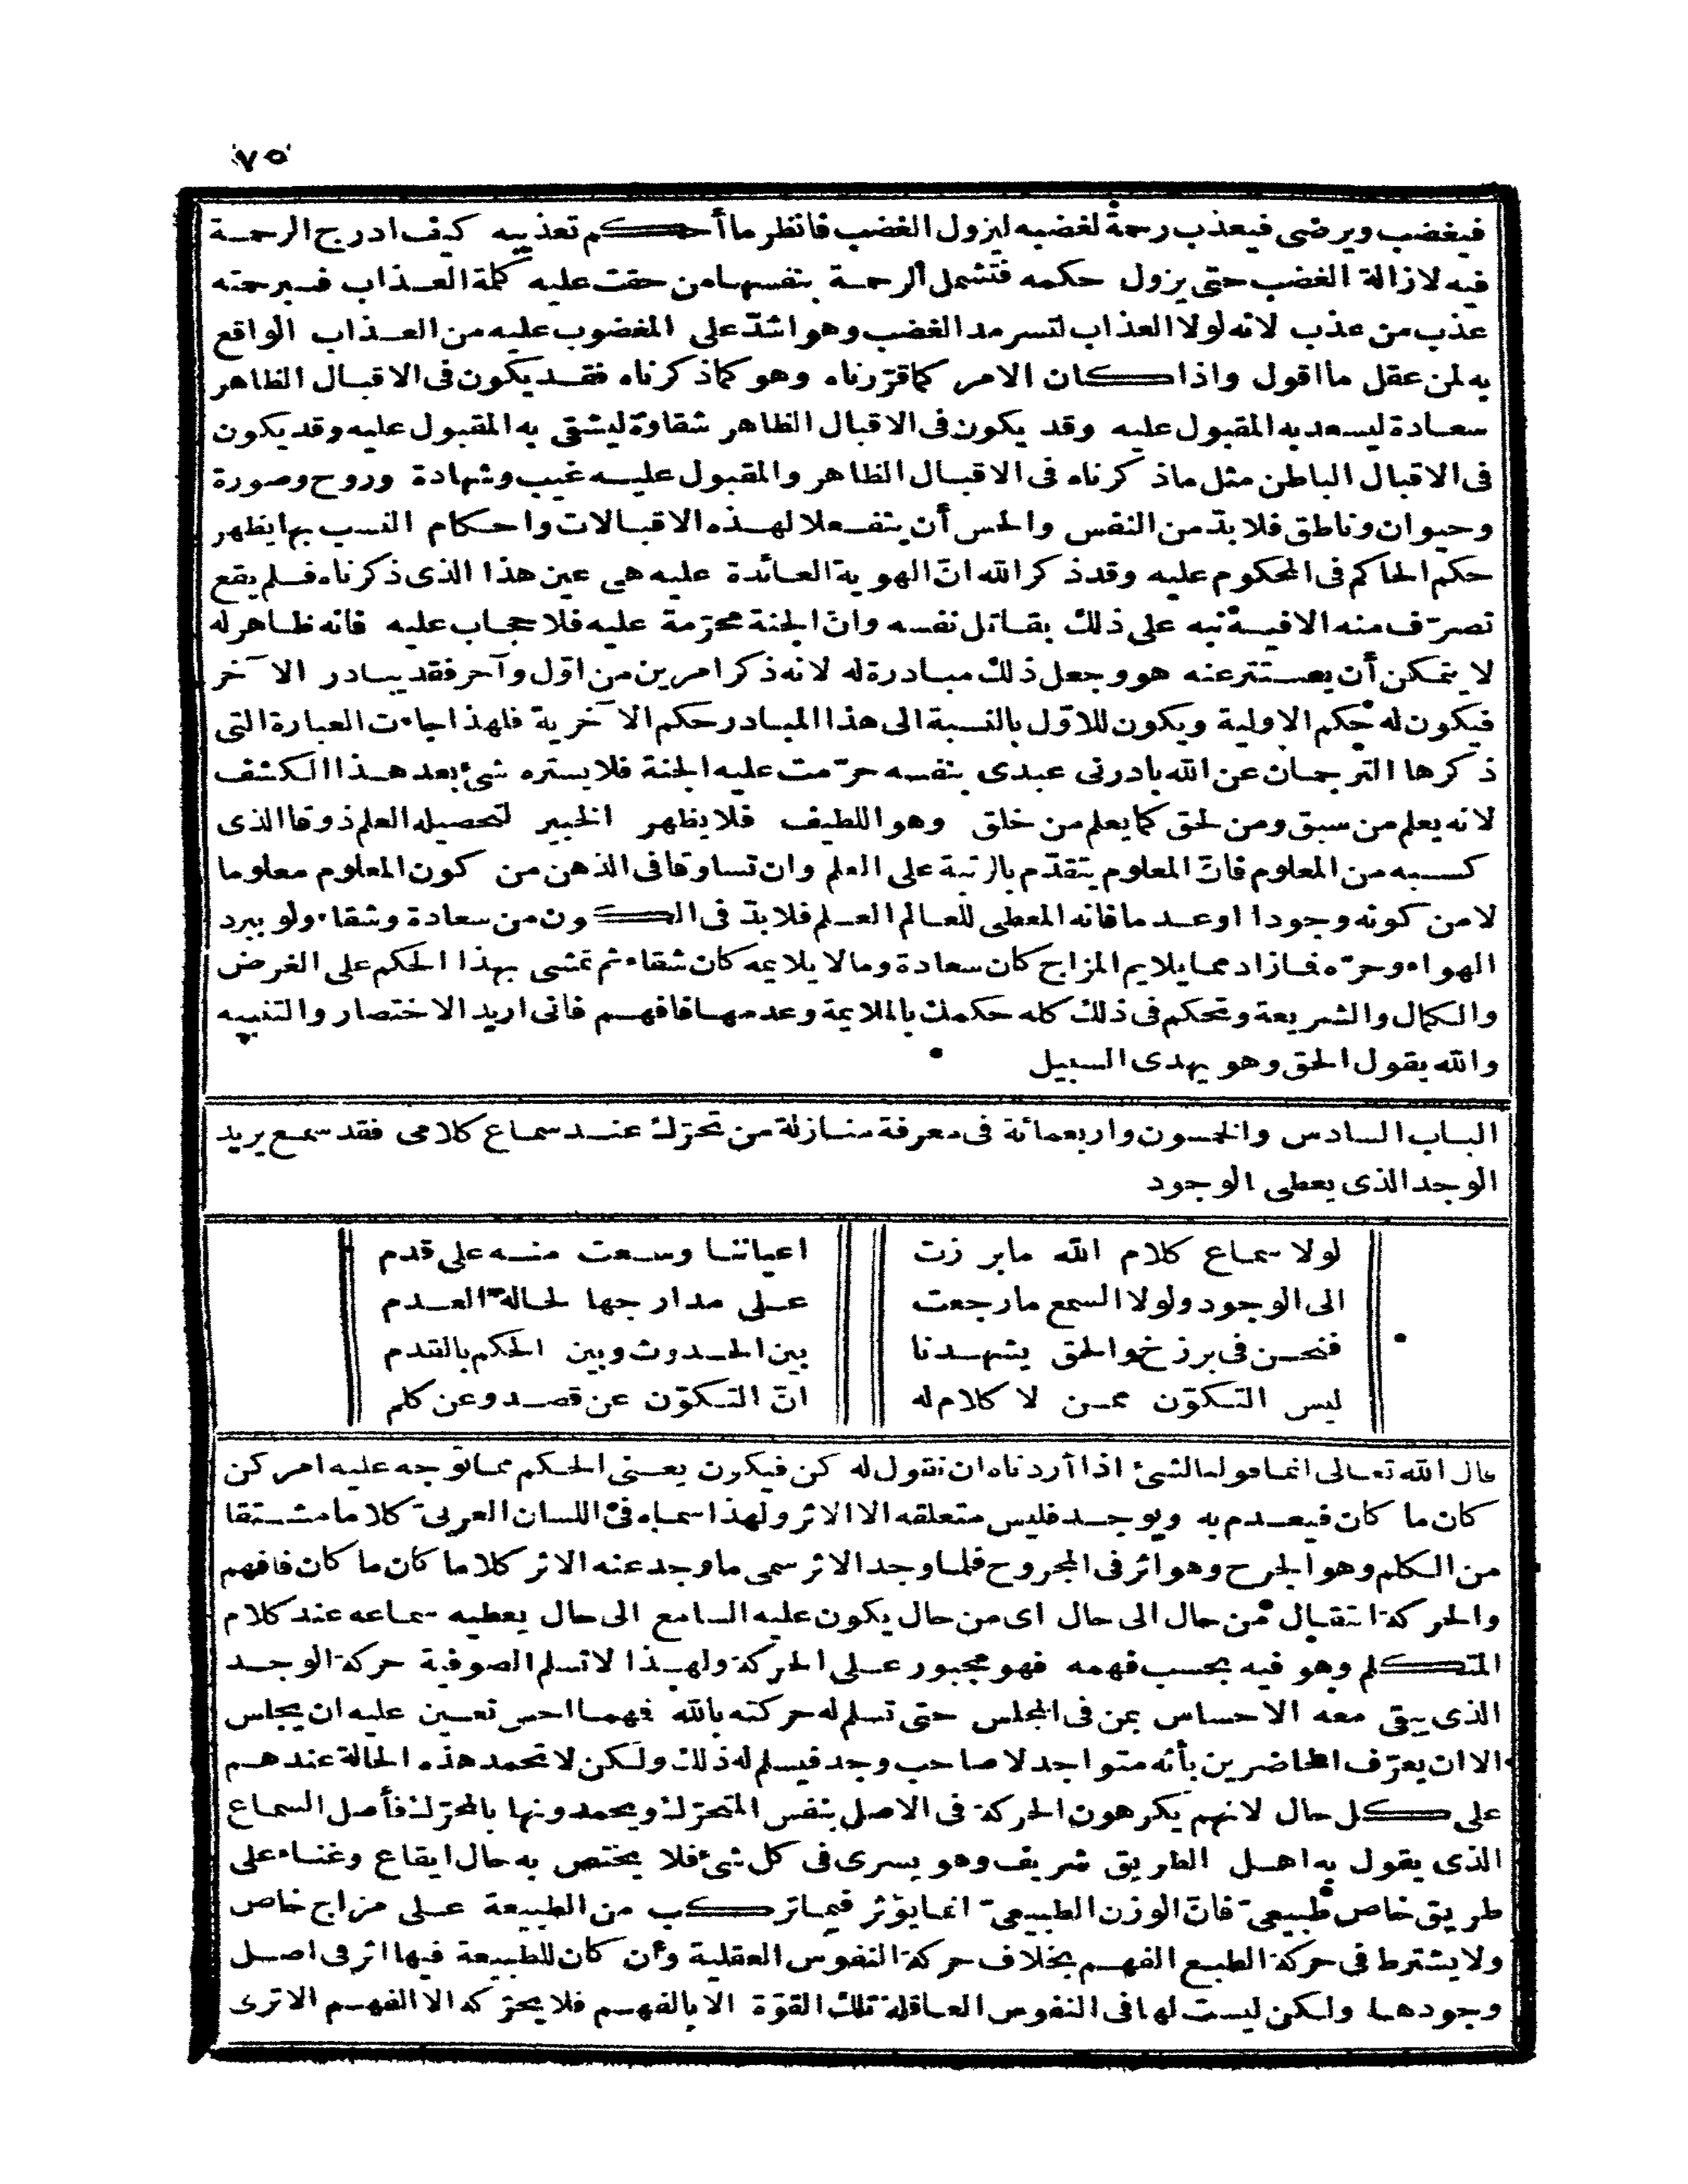 ٧٥
فيغضب ويرضى فيعذب رحمة لغضبه ليزول الغضب فانظر ما أحكم تعذيبه كيف ادرج الرحمة
فيه لازالة الغضب حتى يزول حكمه فتشمل الرحمة بنفسها من حقت عليه كلمة العذاب فبرحمته
عذب من عذب لانه لولا العذاب لتسرمد الغضب وهو اشدّ على المغضوب عليه من العذاب الواقع
به لمن عقل ما اقول واذا كان الامر كما قرّرناه وهو كما ذكرناه فقد يكون فى الاقبال الظاهر
سعادة ليسعد به المقبول عليه وقد يكون فى الاقبال الظاهر شقاوة ليشقى به المقبول عليه وقد يكون
فى الاقبال الباطن مثل ما ذكرناه فى الاقبال الظاهر والمقبول عليه غيب وشهادة وروح وصورة
وحيوان وناطق فلا بدّ من النفس والحس أن ينفعلا لهذه الاقبالات واحكام النسب بها يظهر
حكم الحاكم فى المحكوم عليه وقد ذكر الله انّ الهوية العائدة عليه هى عين هذا الذى ذكرناه فلم يقع
تصرّف منه الا فيه نبه على ذلك بقاتل نفسه وانّ الجنة محرّمة عليه فلا حجاب عليه فانه ظاهر له
لا يتمكن أن يستتر عنه هو وجعل ذلك مبادرة له لانه ذكر امرين من اوّل وآخر فقد يبادر الآخر
فيكون له حكم الاولية ويكون للاوّل بالنسبة الى هذا المبادر حكم الآخرية فلهذا جاءت العبارة التى
ذكرها الترجمان عن الله بادرنى عبدى بنفسه حرّمت عليه الجنة فلا يستره شئ بعد هذا الكشف
لانه يعلم من سبق ومن لحق كما يعلم من خلق وهو اللطيف فلا يظهر الخبير لتحصيله العلم ذوقا الذى
كسبه من المعلوم فانّ المعلوم يتقدّم بالرتبة على العلم وان تساوقا فى الذهن من كون المعلوم معلوما
لا من كونه وجودا او عدما فانه المعطى للعالم العلم فلا بدّ فى الكون من سعادة وشقاء ولو ببرد
الهواء وحرّه فما زاد مما يلايم المزاج كان سعادة وما لا يلايمه كان شقاء ثم تمشى بهذا الحكم على الغرض
والكمال والشريعة وتحكم فى ذلك كله حكمك بالملايمة وعدمها فافهم فانى اريد الاختصار والتنبيه
والله يقول الحق وهو يهدى السبيل
الباب السادس والخمسون واربعمائة فى معرفة منازلة من تحرّك عند سماع كلامى فقد سمع يريد
الوجد الذى يعطى الوجود
لولا سماع كلام الله ما برزت اعياننا وسعت منه على قدم
الى الوجود ولولا السمع ما رجعت على مدارجها لحالة العدم
فنحن فى برزخ والحق يشهدنا بين الحدوث وبين الحكم بالقدم
ليس التكوّن ممن لا كلام له انّ التكوّن عن قصد وعن كلم
قال الله تعالى انما قولنا لشئ اذا أردناه ان نقول له كن فيكون يعنى الحكم مما توجه عليه امر كن
كان ما كان فيعدم به ويوجد فليس متعلقه الا الاثر ولهذا سماه فى اللسان العربىّ كلاما مشتقا
من الكلم وهو الجرح وهو اثر فى المجروح فلما وجد الاثر سمى ما وجد عنه الاثر كلاما كان ما كان فافهم
والحركة انتقال من حال الى حال اى من حال يكون عليه السامع الى حال يعطيه سماعه عند كلام
المتكلم وهو فيه بحسب فهمه فهو مجبور على الحركة ولهذا لا تسلم الصوفية حركة الوجد
الذى يبقى معه الاحساس بمن فى المجلس حتى تسلم له حركته بالله فهما احس تعين عليه ان يجلس
الا ان يعرّف الحاضرين بأنه متواجد لا صاحب وجد فيسلم له ذلك ولكن لا تحمد هذه الحالة عندهم
على كل حال لانهم يكرهون الحركة فى الاصل بنفس المتحرّك ويحمدونها بالمحرّك فأصل السماع
الذى يقول به اهل الطريق شريف وهو يسرى فى كل شئ فلا يختص به حال ايقاع وغناء على
طريق خاص طبيعىّ فانّ الوزن الطبيعىّ انما يؤثر فيما تركب من الطبيعة على مزاج خاص
ولا يشترط فى حركة الطبع الفهم بخلاف حركة النفوس العقلية وأن كان للطبيعة فيها اثر فى اصل
وجودها ولكن ليست لها فى النفوس العاقلة تلك القوّة الا بالفهم فلا يحرّكه الا الفهم الا ترى